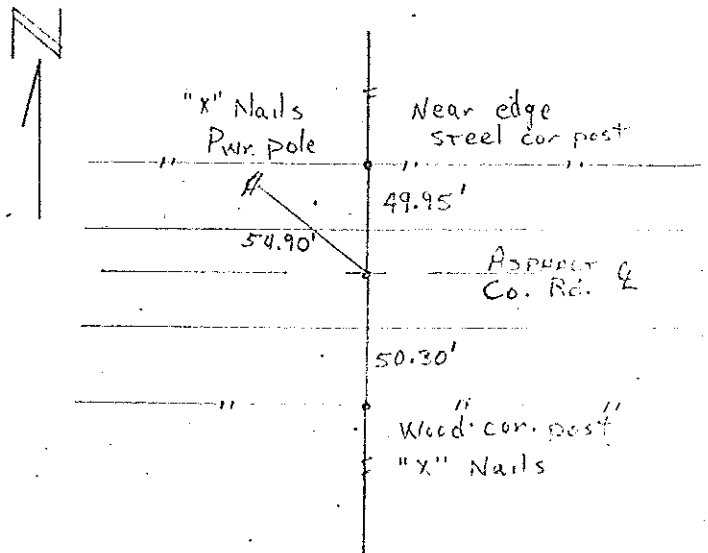 N
"X" Nails
Pwr. pole
Near edge
steel cor post
49.95'
54.90'
ASPHALT
Co. Rd. ℄
50.30'
Wood cor. post
"X" Nails